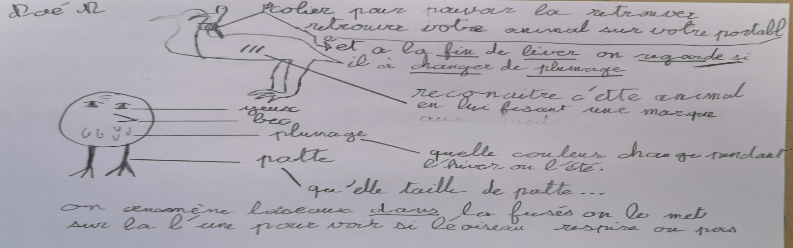 Noé N
colier pour pouvoir la retrouver
retrouver votre animal sur votre portabl
et a la fin de liver on regarde si
il à changer de plumage
reconaitre c'ette animal
en lui fesant une marque
yeux
bec
plunage
quelle couleur change pendant
l'hiver ou l'été.
patte
qu'elle taille de patte...
on enmène loiseaux dans la fusés on le met
sur la l'une pour voir si le oiseau respire ou pas